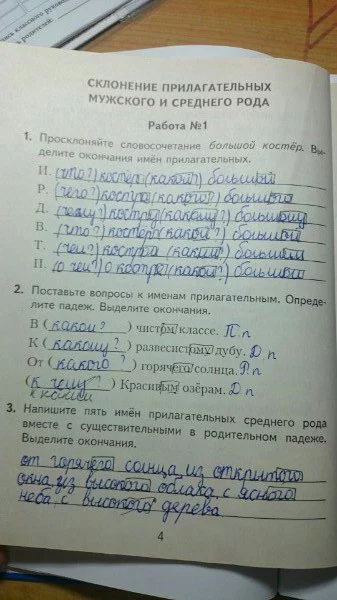 СКЛОНЕНИЕ ПРИЛАГАТЕЛЬНЫХ
МУЖСКОГО И СРЕДНЕГО РОДА
Работа №1
1. Просклоняйте словосочетание большой костёр. Вы-
делите окончания имён прилагательных.
И. (что?) костёр (какой?) большой
Р. (чего?) костра (какого?) большого
Д. (чему?) костру (какому?) большому
В. (что?) костёр (какой?) большой
Т. (чем?) костром (каким?) большим
П. (о чём?) о костре (каком?) большом
2. Поставьте вопросы к именам прилагательным. Опреде-
лите падеж. Выделите окончания.
В (каком?) чистом классе. П п
К (какому?) развесистому дубу. Д п
От (какого?) горячего солнца. Р.п
(к чему?) Красивым озёрам. Д п
3. Напишите пять имён прилагательных среднего рода
вместе с существительными в родительном падеже.
Выделите окончания.
от горячего солнца, из открытого
окна, из высокого облака, с ясного
неба с высокого дерева
4